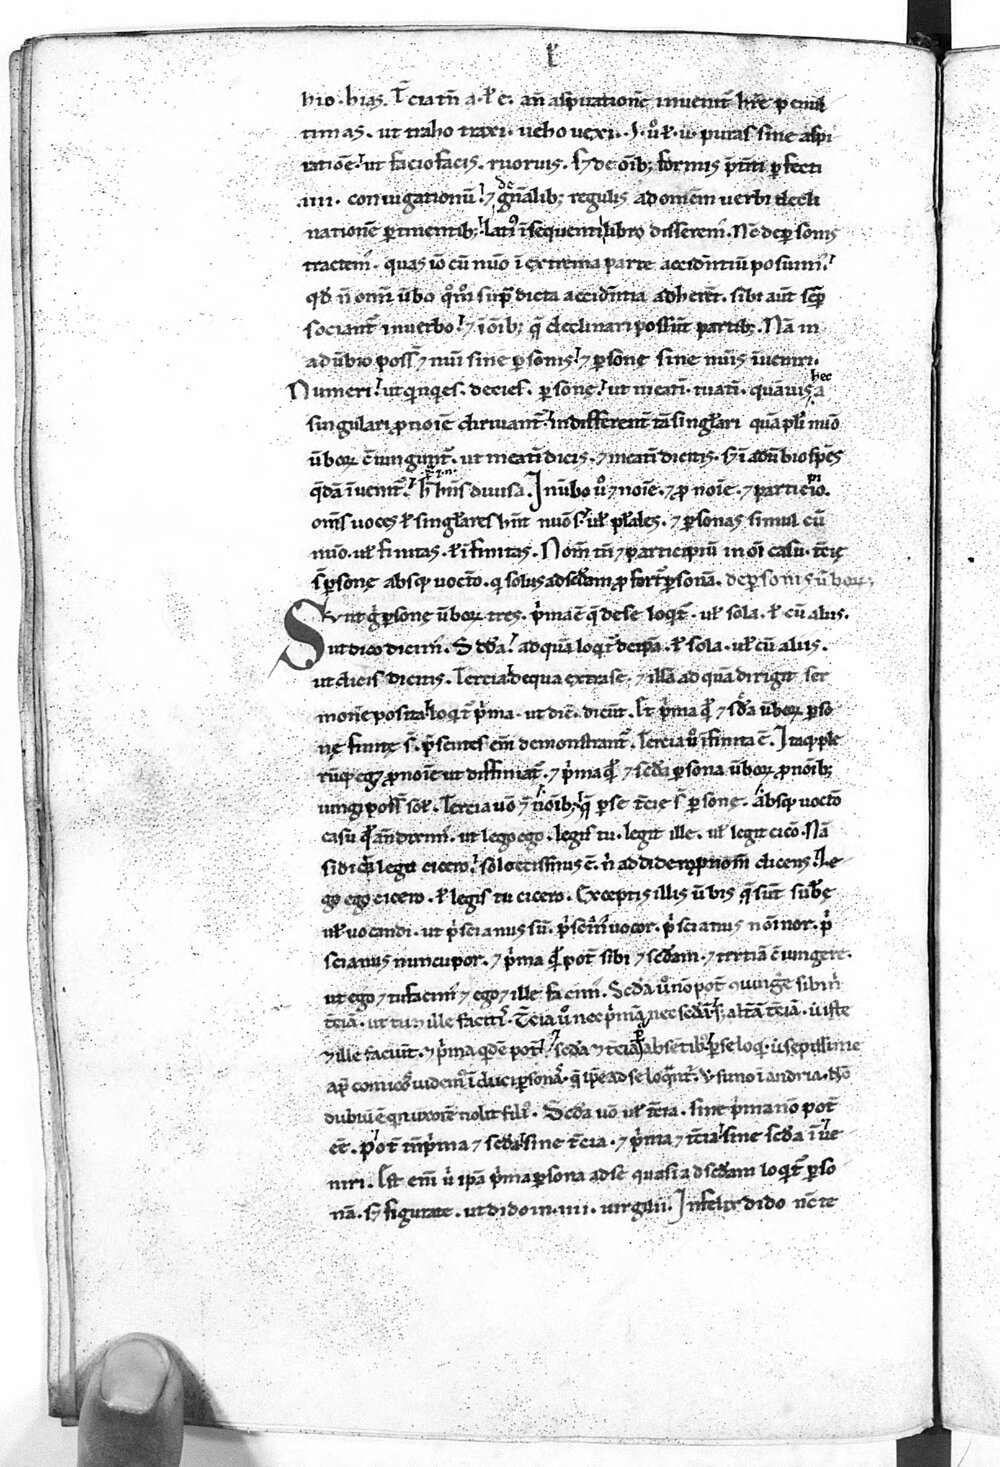 hio . hias . Tcia tn̄ a . ł e . an̄ aspirationē inueniť hr̄e penul
timas . ut traho traxi . ueho uexi . I . u̾o ł . u . puras sine aspi
ratiōe . ut facio facis . ruo ruis . S; de oīb; formis p̄titi pfecti
.iiii . coniugationū . ⁊ de gn̄alib; regulis ad omem uerbi decli
nationē ptinentib; lati᷒ ī sequenti libro disserem᷒ . Nc̄ de psonis
tractem᷒ . quas iō cū nūo ī extrema parte accidentiū posuim᷒ .
qđ n̄ om̄i ūbo qm̄ sup̄dicta accidentia adherēt . sibi aūt sēp
socianť in uerbo . ⁊ ī oīb; q̄ declinari possūt partib; . Nā in
aduerbio possť ⁊ nūi sine psonis . ⁊ psonę sine nūis īueniri .
Numeri . ut quinquies . decies . psonę . ut meatī . tuatī . quāuis hec a
singulari pnoīe deriuanť . indifferenť tā singlari quā plī nūo
ūboꝝ ꝯiungunť . ut meatī dicis . ⁊ meatī dicitis . S; ī aduerbio spēs
q̄dā īuenitť . h̄ habens diuisa . In ūbo u̾o ⁊ noīe . ⁊ pnoīe . ⁊ participio .
om̄s uoces ł singlares hn̄t nūos . uł płales . ⁊ psonas simul cū
nūo . uł finitas . ł īfinitas . Nom̄ tn̄ ⁊ participiū in oī casu . tcię
s̄ psonę absq uocťo . qi solus ad scđam pferť psonā . de psonis ūboꝝ .
Sunt g̾ psonę ūboꝝ tres . p̾ma ē q̄ de se loqť . uł sola . ł cū aliis .
ut dico dicim᷒ . Scđa . ad quā loqť de ipa . ł sola . uł cū aliis .
ut dicis dicitis . Tercia . de qua extra se . ⁊ illā ad quā dirigit ser
monē posita loqť p̾ma . ut dic̄ . dicūt . Et p̾ma qđ ⁊ scđa ūboꝝ pso
nę finitę s̄ . p̾sentes em̄ demonstranť . Tercia u̾o īfinita ē . Itaq ple
rūq eg; pnoīe ut diffiniať . ⁊ p̾ma qđ ⁊ scđa psona ūboꝝ pnoīb;
iungi possť sol᷒ . Tercia uō ⁊ noīb; q̄ p se tcię s̄ psonę . absq uocťo
casu qđ an̄ diximus . ut lego ego . legis tu . legit ille . uł legit cicō . Nā
si dicā legit cicero . soloecissmus ē . ni addidero pnom̄ dicens . Le
go ego cicero . ł legis tu cicero . Exceptis illis ūbis q̄ sūt subę
uł uocandi . ut p̾scianus sū . p̾scian᷒ uocor . p̾scianus noīnor . p̾
scianus nuncupor . ⁊ p̾ma qđ pot̄ sibi ⁊ scđam . ⁊ tertiā ꝯiungere .
ut ego ⁊ tu facim᷒ ⁊ ego ⁊ ille facim᷒ . Scđa u̾o nō pot̄ ꝯiungere sibi n̄
tciā . ut tu ⁊ ille facitis . Tcia u̾o nec p̾mā nec scđā . s; altā tciā . ū iste
⁊ ille faciūt . ⁊ p̾ma qđē pot̄ . ⁊ scđa ⁊ tcia absētib; p se loq . ū sepissime
ap̄ comicos uidem᷒ īduci psonā . q̄ ipe ad se loqunť . V simo ī andria . Nō
dubiū ē qn uxorē nolit fili᷒ . Scđa uō uł tcia . sine p̾ma nō pot̄
eē . Pot̄ tn̄ p̾ma ⁊ scđa . sine tcia . ⁊ p̾ma ⁊ tcia . sine scđa īue
niri . Est em̄ ū ipa p̾ma psona ad se quasi ad scđam loqť pso
nā . S; figurate . ut dido in . iiii . uirgilii . Infelix dido nc̄ te